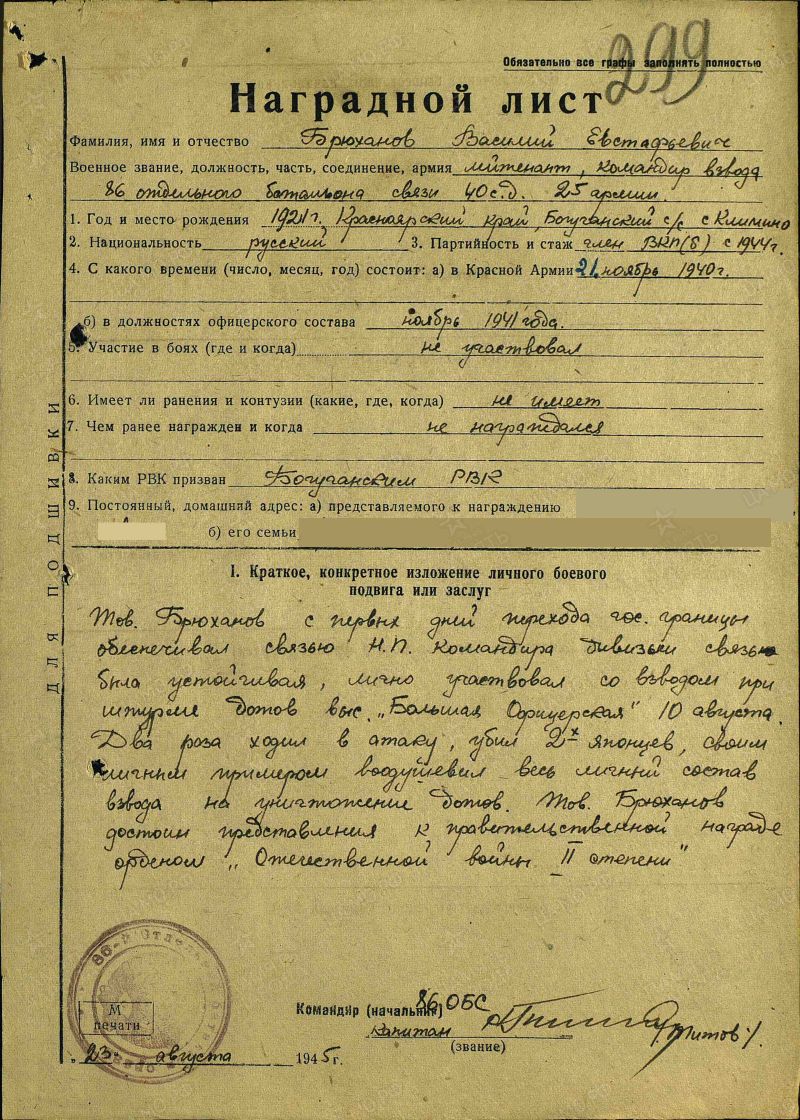 299
Обязательно все графы заполнять полностью
Наградной лист
Фамилия, имя и отчество Брюханов Василий Евстафьевич
Военное звание, должность, часть, соединение, армия лийтенант, командир взвода
86 отдельного батальона связи 40 с.д. 25 армии.
1. Год и место рождения 1921 г. Красноярский край, Богучанский с/с с Климино
2. Национальность русский 3. Партийность и стаж член ВКП(б) с 1944 г.
4. С какого времени (число, месяц, год) состоит: а) в Красной Армии 21 ноябрь 1940 г.
б) в должностях офицерского состава ноябрь 1941 года.
5. Участие в боях (где и когда) не участвовал
6. Имеет ли ранения и контузии (какие, где, когда) не имеет
7. Чем ранее награжден и когда не награждался
8. Каким РВК призван Богучанским РВК
9. Постоянный, домашний адрес: а) представляемого к награждению
б) его семьи
ДЛЯ ПОДШИВКИ
I. Краткое, конкретное изложение личного боевого
подвига или заслуг
Тов. Брюханов с первых дней перехода гос. границы
обеспечивал связью Н.П. командира дивизии связь
была устойчивая, лично участвовал со взводом при
штурме дотов выс. „Большая Офицерская" 10 августа.
Два роза ходил в атаку, убил 2х японцев, своим
личным примером воодушевил весь личный состав
взвода на уничтожение дотов. Тов. Брюханов
достоин представления к правительственной награде
орденом „Отечественной войны II степени"
86-й Отдельн
М
печати
Командир (начальник) 86 ОБС
капитан (Титов).
(звание)
„23" августа 1945 г.